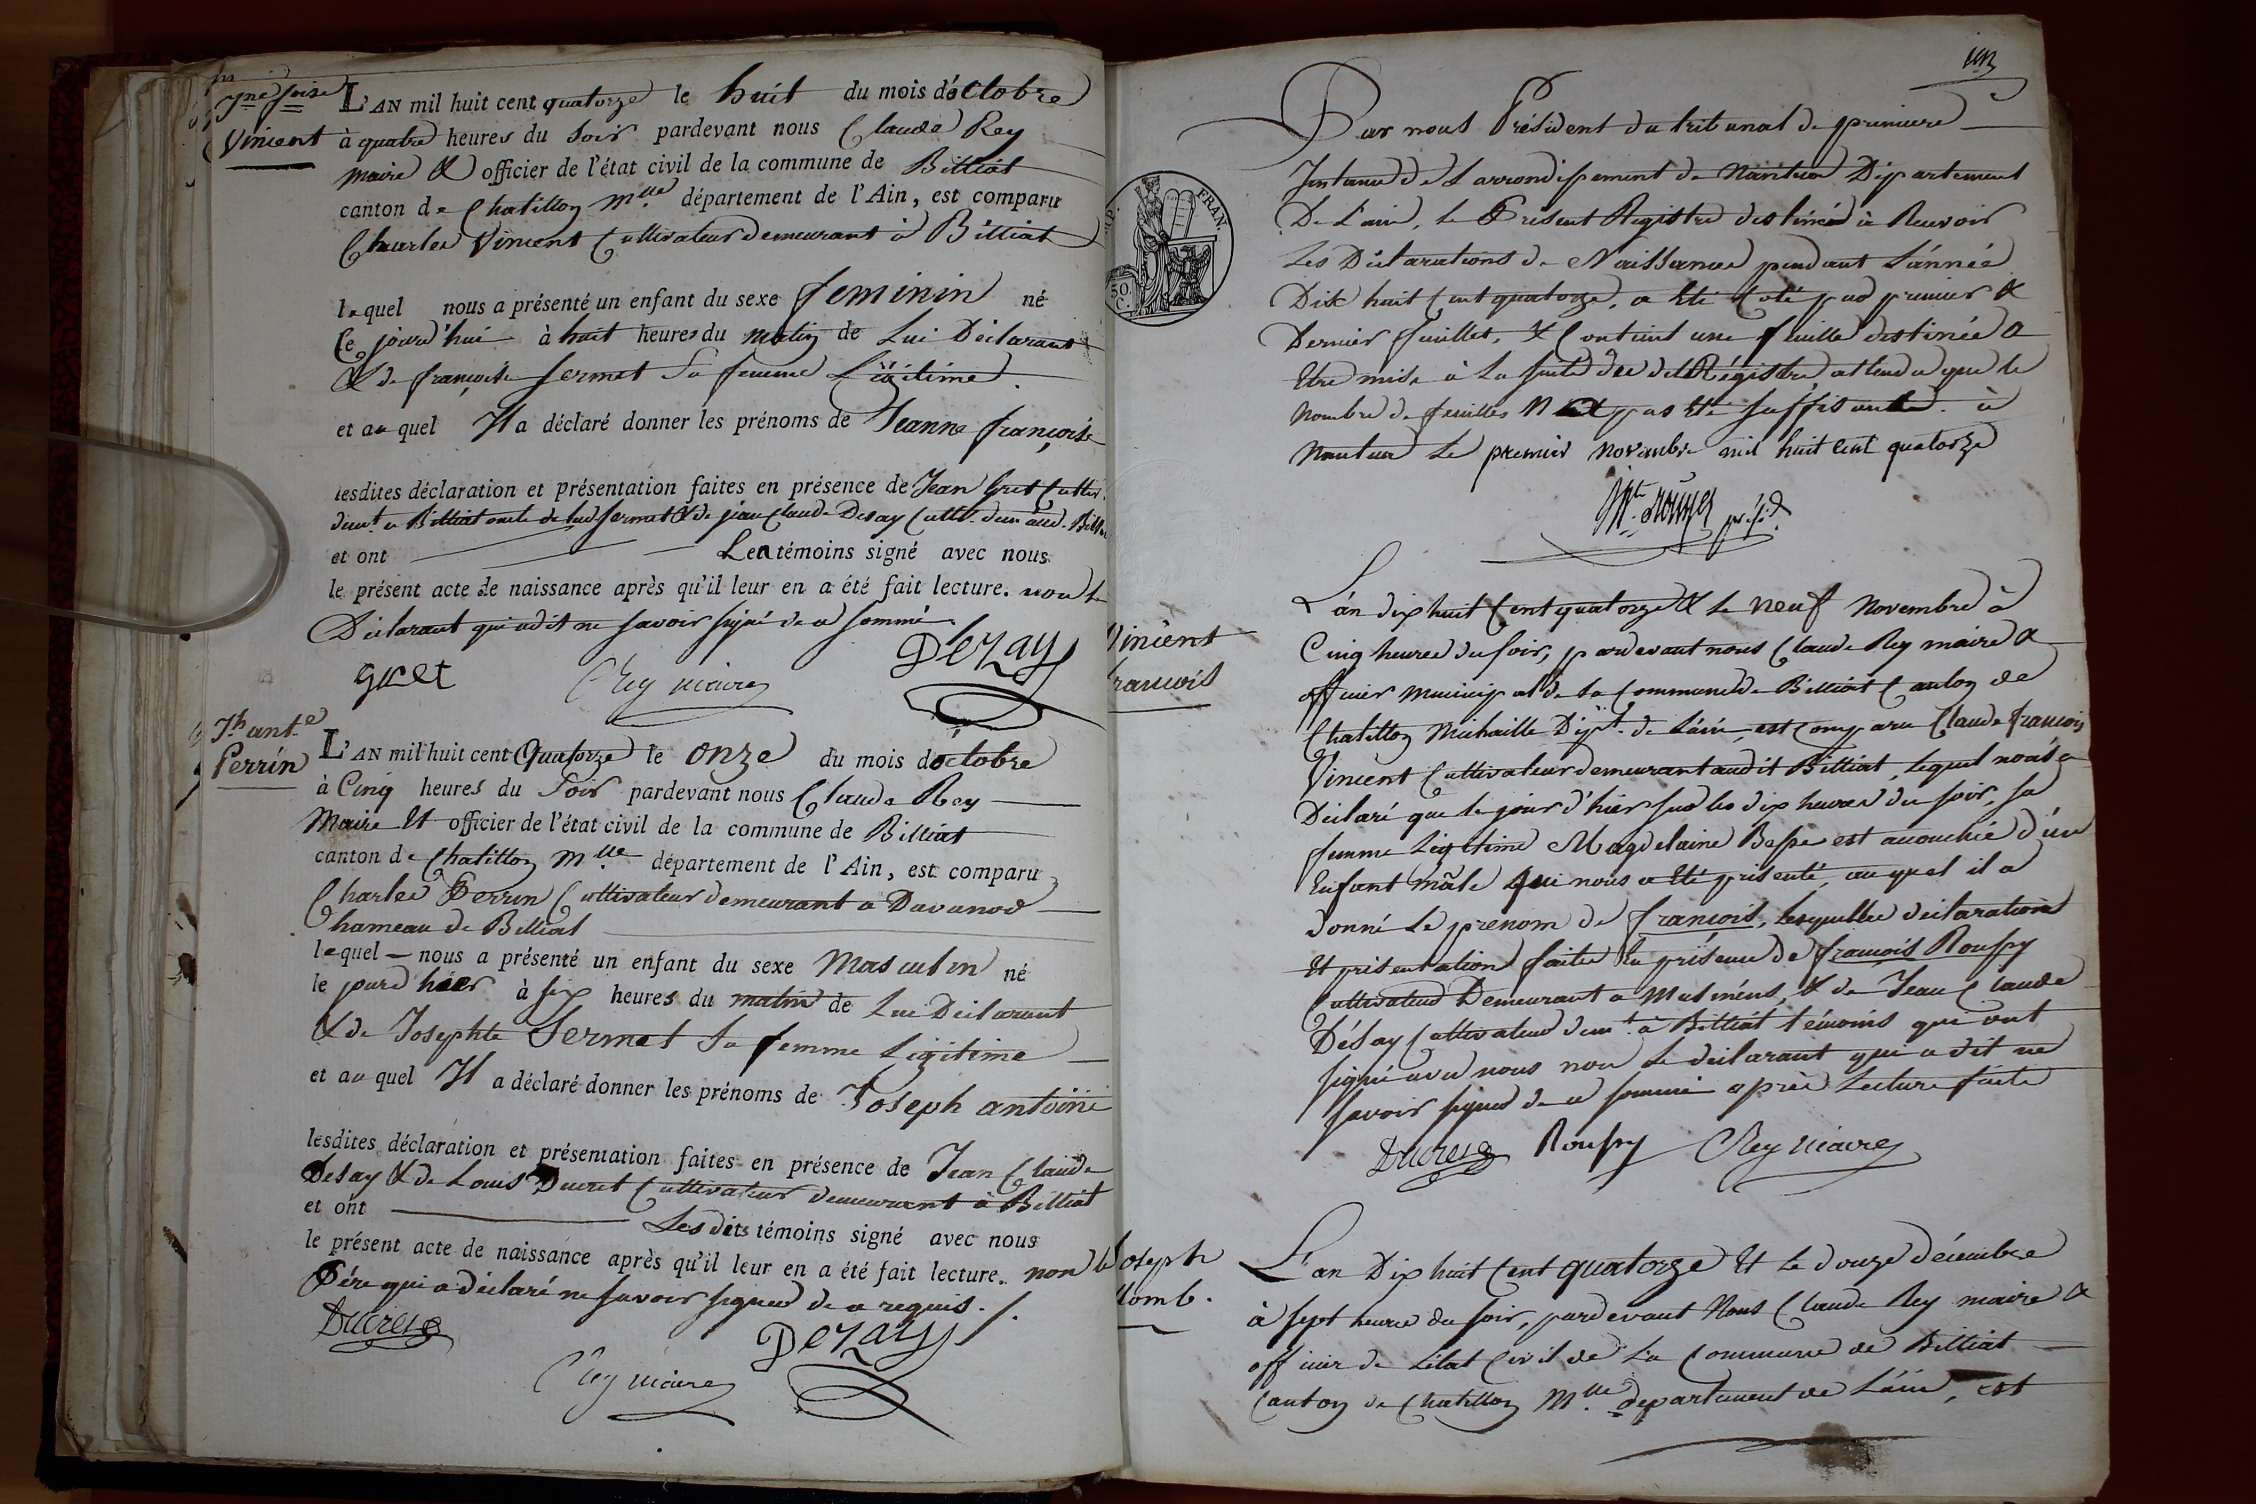 Jne foise
Vincent
L'AN mil huit cent quatorze le huit du mois d'octobre
à quatre heures du soir pardevant nous Claude Rey
maire & officier de l'état civil de la commune de Billiat
canton de Chatillon Mlle département de l'Ain, est comparu
Charles Vincent Cultivateur demeurant à Billiat
lequel nous a présenté un enfant du sexe feminin né
Ce jourd'hui à huit heures du matin de Lui Déclarant
& de françoise Sermet Sa femme Légitime.
et auquel Il a déclaré donner les prénoms de Jeanne françoise
lesdites déclaration et présentation faites en présence de Jean Gret Cultiv.
demt a Billiat oncle de lad. Sermet & de jean Claude Desay Cultr. dem. aud. Billiat
et ont Les témoins signé avec nous
le présent acte de naissance après qu'il leur en a été fait lecture. non le
Déclarant qui a dit ne savoir signé de ce sommé.
gret CRey maire Dezay
Jh ante
Perrin
L'AN mil huit cent Quatorze le onze du mois d'octobre
à Cinq heures du Soir pardevant nous Claude Rey
Maire Et officier de l'état civil de la commune de Billiat
canton de Chatillon Mlle département de l'Ain, est comparu
Charles Perrin Cultivateur demeurant a Davanod
hameau de Billiat
lequel nous a présenté un enfant du sexe Masculin né
le jourd hier à six heures du matin de Lui Déclarant
& de Josephte Sermet Sa femme Légitime
et auquel Il a déclaré donner les prénoms de Joseph antoine
lesdites déclaration et présentation faites en présence de Jean Claude
Desay & de Louis Ducret Cultivateur demeurant à Billiat
et ont Lesdits témoins signé avec nous
le présent acte de naissance après qu'il leur en a été fait lecture. non le
Père qui a déclaré ne savoir signer de ce requis.
Ducret CRey maire Dezay
FRAN.
50.
C.
Par nous Président du tribunal de premiere
Instance de L'arrondissement de Nantua Département
De L'ain, le Présent Registre destiné à Recevoir
Les Déclarations de Naissance pendant L'année
Dix huit Cent quatorze, a Eté Coté par premier &
Dernier feuillet, & Contient une feuille destinée a
Etre mise à La suite du dit Régistre attendu que le
nombre de feuilles N'a pas Eté suffisant. à
Nantua Le premier Novembre mil huit Cent quatorze
présid.
Vincent
francois
L'an dix huit Cent quatorze & le neuf Novembre à
Cinq heures du soir, pardevant nous Claude Rey maire &
officier municipal de la Commune de Billiat Canton de
Chatillon Michaille Dépt. de L'ain, est Comparu Claude francois
Vincent Cultivateur demeurant audit Billiat, lequel nous a
Déclaré que le jour d'hier sur les dix heures du soir, sa
femme Légitime Magdelaine Besse est accouchée d'un
Enfant mâle qui nous a Eté présenté, auquel il a
donné Le prenom de francois, lesquelles déclaration
Et présentation faites En présence de francois Roussy
Cultivateur Demeurant a Musinens, & de Jean Claude
Désay Cultivateur demt. à Billiat témoins qui ont
signé avec nous non le déclarant qui a dit ne
savoir signer de ce sommé après Lecture faite
Ducret Roussy CRey maire
Joseph
L'an Dix huit Cent quatorze Et Le douze décembre
à sept heures du soir, pardevant Nous Claude Rey maire &
officier de L'état Civil de La Commune de Billiat
Canton de Chatillon Mlle département de L'ain, est